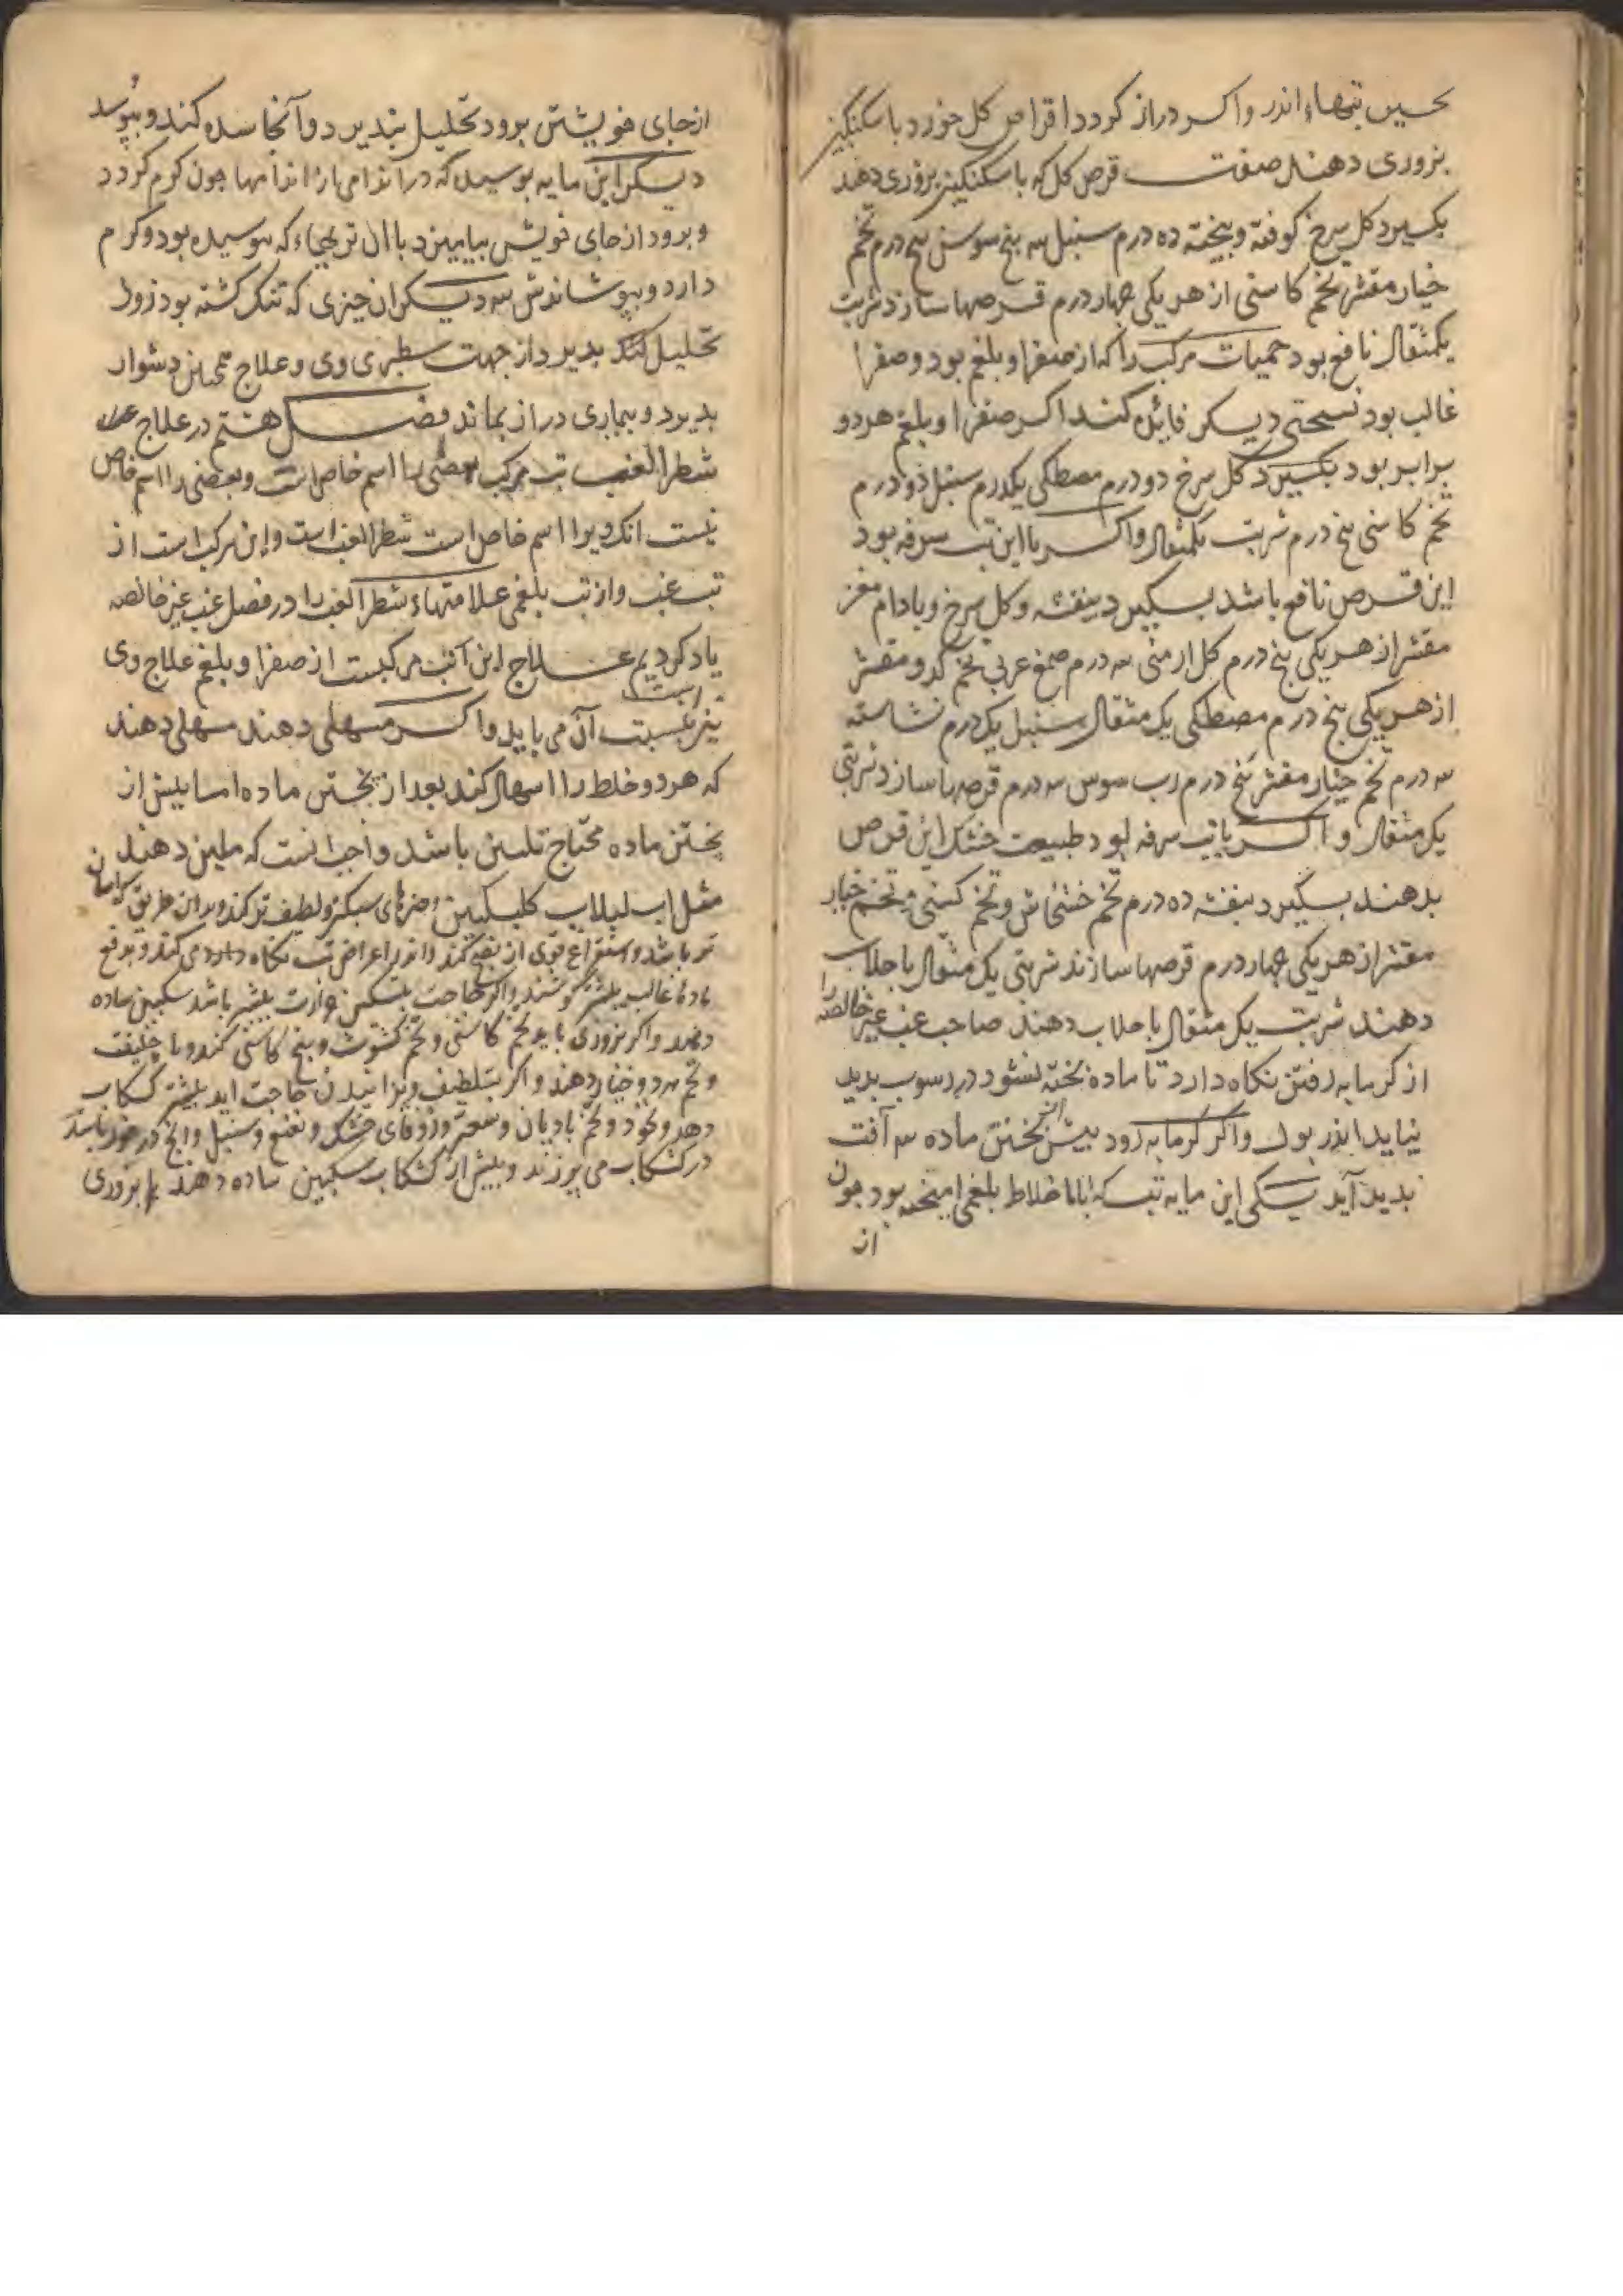 تبهاء اندر واکر دراز کردد اقراص کل خورد با سکنکبین
بزوری دهند صفت قرص کل که با سکنکبین بزوری دهند
بکیرد کل سرخ کوفته وبیخته ده درم سنبل سه بنج سوسن بنج درم تخم
خیار مقشر تخم کاسنی از هر یکی جهار درم قرصها سازد شربت
یکمثقال نافع بود حمیات مرکب را که از صفرا وبلغم بود وصفرا
غالب بود نسختی دیکر فائده کند اکر صفرا وبلغم هر دو
برابر بود بکیرد کل سرخ دو درم مصطکی یکدرم سنبل دو درم
تخم کاسنی بنج درم شربت یکمثقال واکر با این تب سرفه بود
این قرص نافع باشد بکیرد بنفشه وکل سرخ وبادام مغز
مقشر از هر یکی بنج درم کل ارمنی سه درم صمغ عربی تخم کدو مقشر
از هر یکی بنج درم مصطکی یک مثقال سنبل یک درم نشاسته
سه درم تخم خیار مقشر بنج درم رب سوس سه درم قرصها سازد شربتی
یک مثقال واکر با تب سرفه بود طبیعت خشک این قرص
بدهند بکیرد بنفشه ده درم تخم خشخاش وتخم کسنی وتخم خیار
مقشر از هر یکی جهار درم قرصها سازند شربتی یک مثقال با جلاب
دهند شربت یک مثقال با جلاب دهند صاحب غب غیر خالصه را
از کرمابه رفتن نکاه دارد تا ماده بخته نشود در رسوب بدید
نیاید اندر بول واکر کرمابه رود بیش از بختن ماده سه آفت
بدید آید یکی این مایه تب که با اخلاط بلغمی امیخته بود جون
از
از جای خویشتن برود تحلیل نبذیرد وآنجا سده کند وببوسد
دیکر این مایه بوسیده که در اندامی از اندامها جون کرم کردد
وبرود از جای خویش بیامیزد با ان تریهاء که نبوسیده بود وکرم
دارد وببوشاندش سه دیکر ان جیزی که تنک کشته بود زود
تحلیل کند بذیرد از جهت سطبری وی وعلاج همچنین دشوار
بذیرد وبیماری دراز بماند فصل هشتم در علاج
شطر الغب تب مرکب بعضی را اسم خاص است وبعضی را اسم خاص
نیست انک ویرا اسم خاص است شطر الغب است واین مرکب است از
تب غب واز تب بلغمی علامتهاء شطر الغب را در فصل غب غیر خالصه
یاد کردیم علاج این تب مرکبست از صفرا وبلغم علاج وی
نیز بنسبت آن می باید واکر مسهلی دهند مسهلی دهند
که هر دو خلط را اسهال کند بعد از بختن ماده اما بیش از
بختن ماده محتاج تلیین باشد واجب انست که ملین دهند
مثل اب لبلاب کلبکبین وجیزهای سبکتر ولطیف تر کند وبر ان طریق
تر باشد واستفراغ قوی از نضج کند واندر اعراض تب نکاه دارد می کند وبدفع
ماده غالب بیشتر کوشند واکر حاجت بتسکین حرارت بیشتر باشد سکبین ساده
دهند واکر بزوری باید تخم کاسنی وتخم کشوث وبیخ کاسنی کند وبا
وتخم هر دو خیار دهند واکر بتلطیف وبزانیدن حاجت اید بیشتر کشکاب
دهد ونخود وتخم بادیان وسعتر وزوفای خشک ونعنع وسنبل وانج در خور باشد
در کشکاب می بزند وبیش از کشکاب سکبین ساده دهند یا بزوری